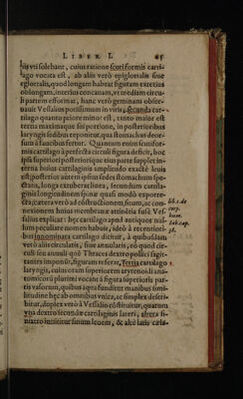 LIBER I. 45
ijs vti solebant, cuius ratione scutiformis carti-
lago vocata est, ab alijs verò epiglottalis siue
eglottalis, quod longam habeat figuram exterius
oblongam, interius concauam, et mediam circu-
li partem efformat, hanc verò geminam obser-
uauit Vessalius potissimum in viris, secunda car-
tilago quanto priore minor est, tanto maior est
tertia maximaque sui portione, in posterioribus
laryngis sedibus reponitur, qua stomachus deor-
sum à faucibus fertur. Quantum enim scutifor-
mis cartilago à perfecta circuli figura deficit, hoc
ipsa superiori posteriorique eius parte supplet in-
terna huius cartilaginis amplitudo exactè leuis
est posterior autem ipsius sedes stomachum spe-
ctans, longa exuberat linea, secundum cartila-
ginis longitudinem spinæ quasi modo exporre-
cta, cætera verò ad cōstructionem suam, ac con-
nexionem huius membranæ attinētia fusè Ves-
salius explicat: hęc cartilago apud antiquos nul-
lum peculiare nomen habuit, ideò à recentiori-
bus innominata cartilago dicitur, à quibusdam
verò alijs circularis, siue annularis, eò quod cir-
culi seu annuli quē Thraces dextro pollici sagit-
tantes imponūt, figuram referat, Tertia cartilago
laryngis, cuius etiam superiorem arytenoīdi ana-
tomicorū plurimi vocant à figura superioris par-
tis vasorum, quibus aqua funditur manibus simi-
litudine hęc ab omnibus vnica, ac simplex descri-
bitur, duplex verò à Vessalio cōstituitur, quarum
vna dextro secundæ cartilaginis lateri, altera si-
nistro innititur sinum leuem, & altè latis cæla-
lib. 1. de
corp.
hum.
fab. cap.
38.